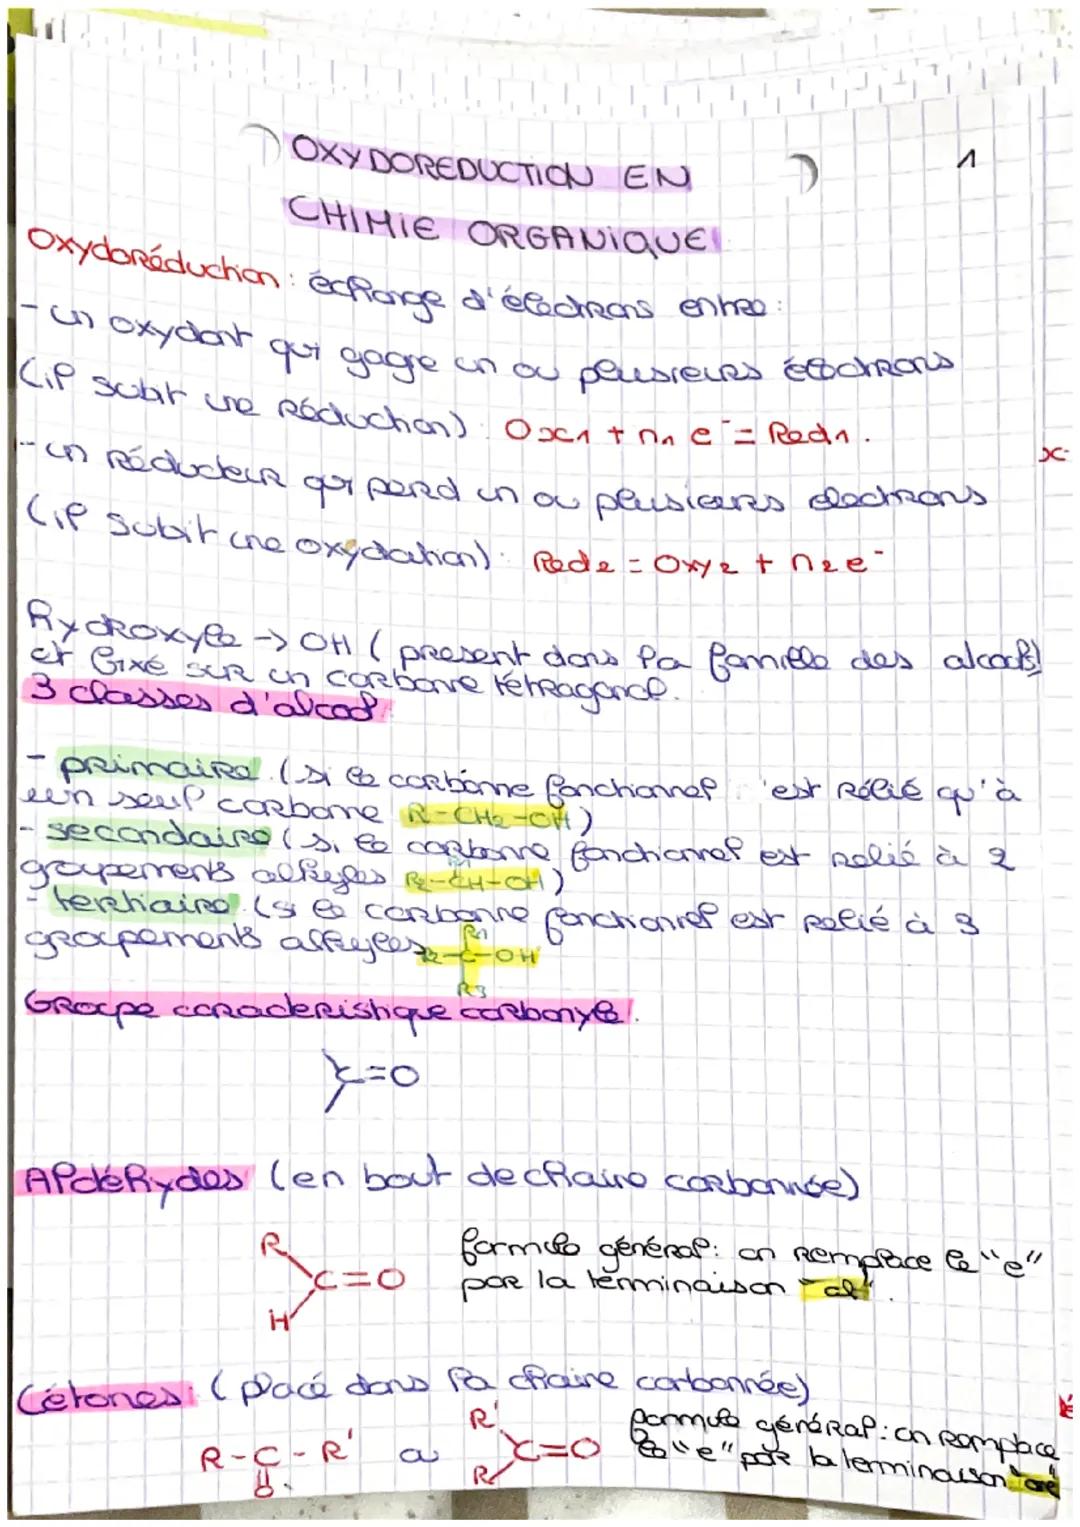 OXYDOREDUCTION EN
1
CHIMIE ORGANIQUE
Oxydoréduction : échange d'électrons entre :
- un oxydant qui gagne un ou plusieurs électrons
(il subit une réduction) : Ox1 + n1 e⁻ = Red1.
- un réducteur qui perd un ou plusieurs electrons
(il subit une oxydation) : Red2 = Oxy2 + n2 e⁻
Hydroxyle → OH (present dans la famille des alcools)
et fixé sur un carbone tétragonal.
3 classes d'alcool :
- primaire (si le carbonne fonctionnel n'est rélié qu'à
un seul carbone R-CH2-OH)
- secondaire (si le carbonne fonctionnel est relié à 2
groupements alkyles R2-CH-OH)
- tertiaire (si le carbonne fonctionnel est relié à 3
groupements alkyles R2-C-OH
R1
R3
Groupe caracteristique carbonyle :
C=O
Aldéhydes (en bout de chaine carbonnée)
R
C=O
H
formule général : on remplace le "e"
par la terminaison "al".
Cétones : (placé dans la chaine carbonnée)
R-C-R' ou
O
R'
C=O
R
formule général : on remplace
le "e" par la terminaison "one